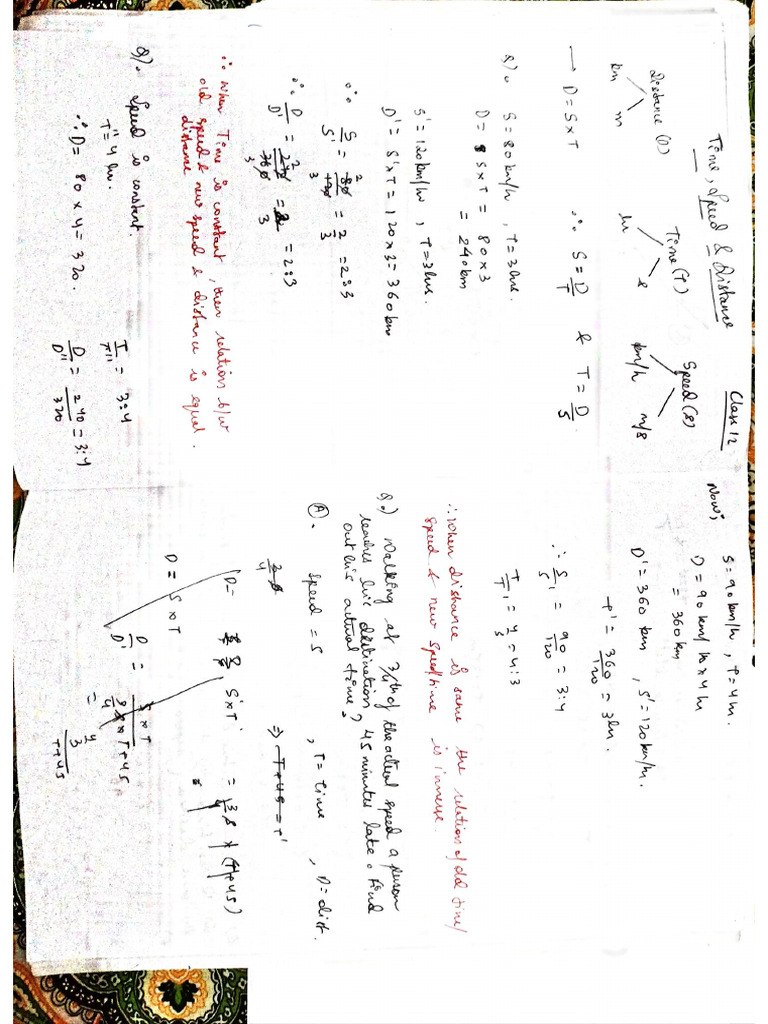 Time, Speed & Distance
Class 12
Distance (D)
km m
Time (T)
hr s
Speed (S)
km/h m/s
→ D = S x T ∴ S = D/T & T = D/S
Q). S = 80 km/h, T = 3 hrs.
D = S x T = 80 x 3
= 240 km
S' = 120 km/hr, T = 3 hrs.
D' = S' x T = 120 x 3 = 360 km
∴ S/S' = 80/120 = 2/3 = 2:3
∴ D/D' = 240/360 = 2/3 = 2:3
∴ When Time is constant, then relation b/w
old speed & new speed & distance is equal.
distance
Q). Speed is constant
T" = 4 hr.
T/T" = 3:4
∴ D = 80 x 4 = 320.
D/D" = 240/320 = 3:4
Now;
S = 90 km/h, T = 4 hr.
D = 90 km/h x 4 h
= 360 km
D' = 360 km, S' = 120 km/h.
T' = 360/120 = 3 hr.
∴ S/S' = 90/120 = 3:4
T/T' = 4/3 = 4:3
∴ When distance is same the relation of old time/
speed & new speed/time is inverse.
Q.) Walking at 3/4th of the actual speed a person
reaches his destination, 45 minutes late. Find
out his actual time?
(A). Speed = S, T = time, D = dist.
3/4 S ⇒ T+45 = T'
D = S' x T' = 3/4 S x (T+45)
D = S x T
D/D' = S x T / 3/4 S x T+45
= 4/3 T+45